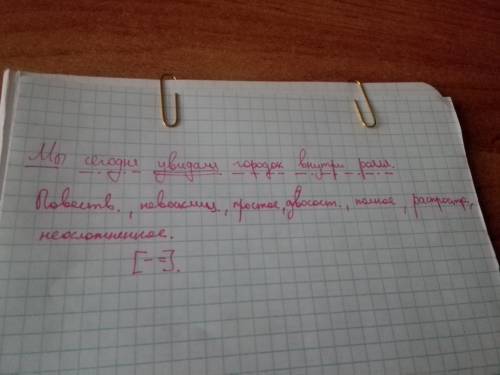 Мы сегодня увидали городок внутри рояля.
Повеств., невосклиц., простое, двусост., полное, распростр.,
неосложненное.
[- =].